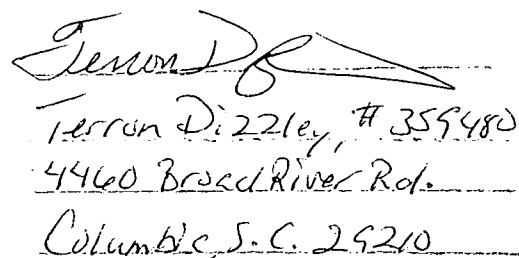 Terron D
Terron Dizzley, # 359480
4460 Broad River Rd.
Columbia, S.C. 29210